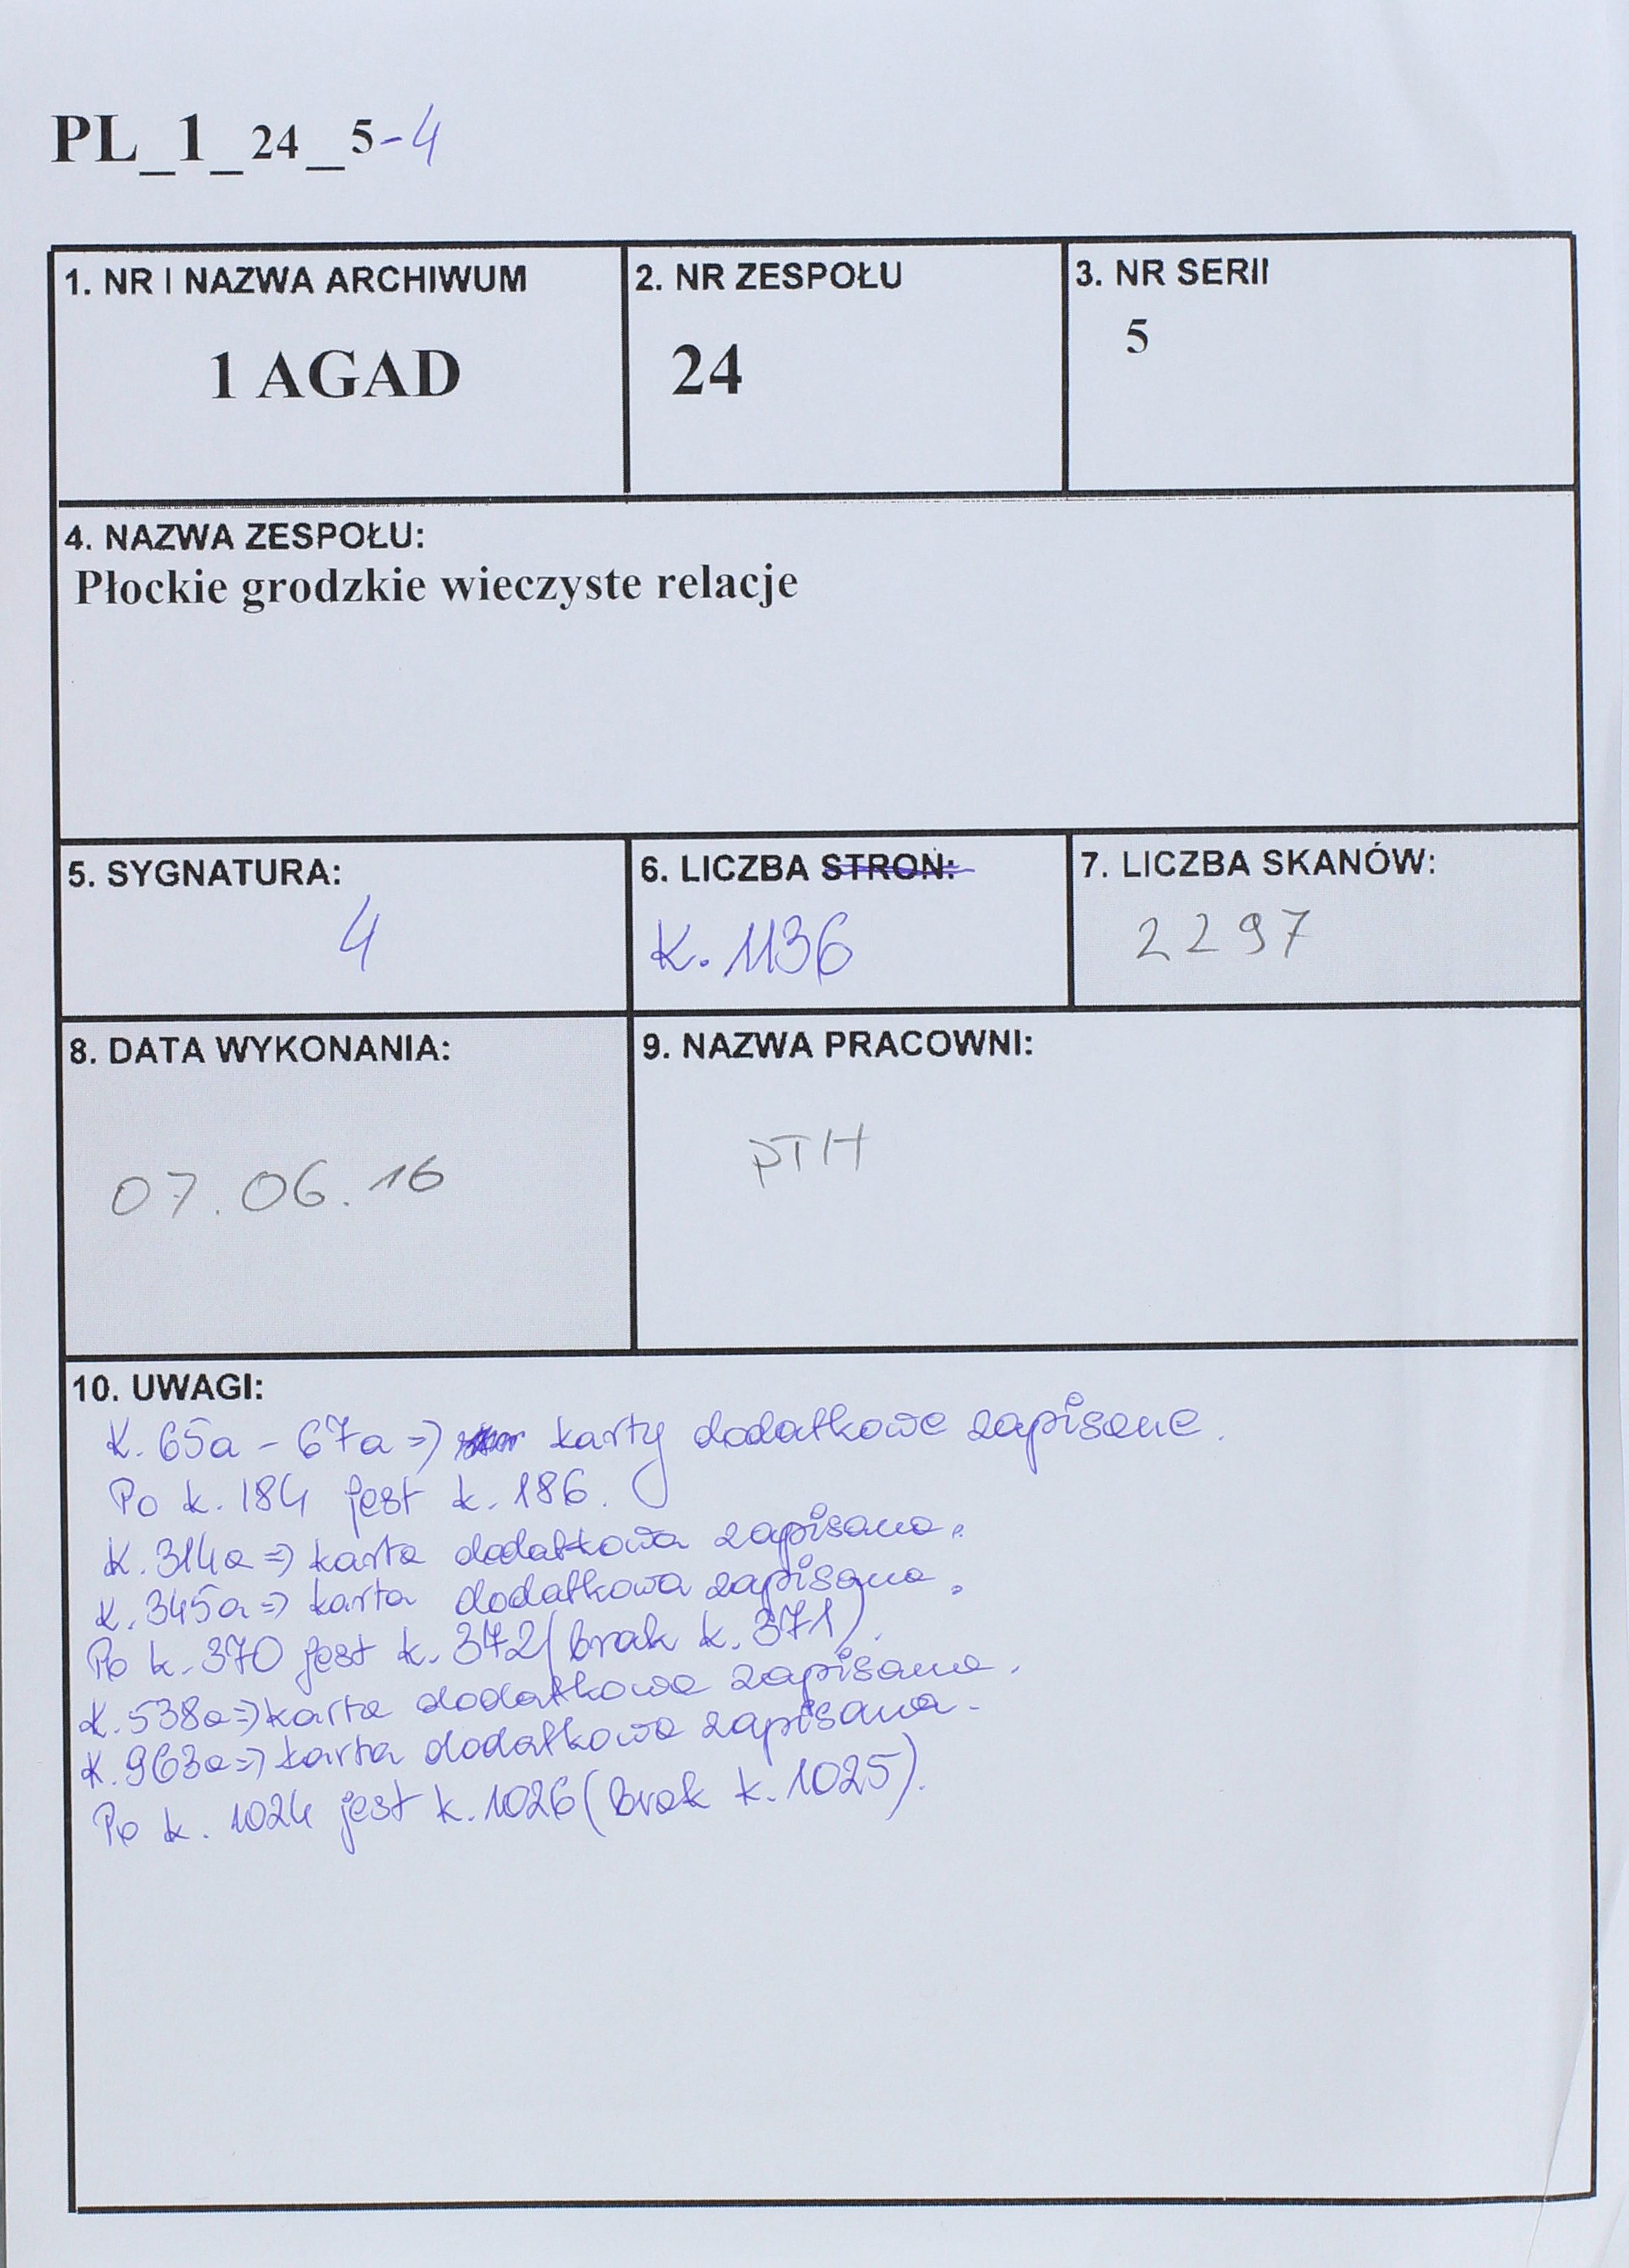 PL_1_24_5-4
1. NR I NAZWA ARCHIWUM
1 AGAD
2. NR ZESPOŁU
24
3. NR SERII
5
4. NAZWA ZESPOŁU:
Płockie grodzkie wieczyste relacje
5. SYGNATURA:
4
6. LICZBA STRON:
K. 1136
7. LICZBA SKANÓW:
2297
8. DATA WYKONANIA:
07.06.16
9. NAZWA PRACOWNI:
PTH
10. UWAGI:
K. 65a - 67a => karty dodatkowe zapisane.
Po k. 184 jest k. 186.
K. 314a => karta dodatkowa zapisana.
K. 345a => karta dodatkowa zapisana.
Po k. 370 jest k. 372 (brak k. 371).
K. 538a => karta dodatkowa zapisana.
K. 963a => karta dodatkowa zapisana.
Po k. 1024 jest k. 1026 (brak k. 1025).